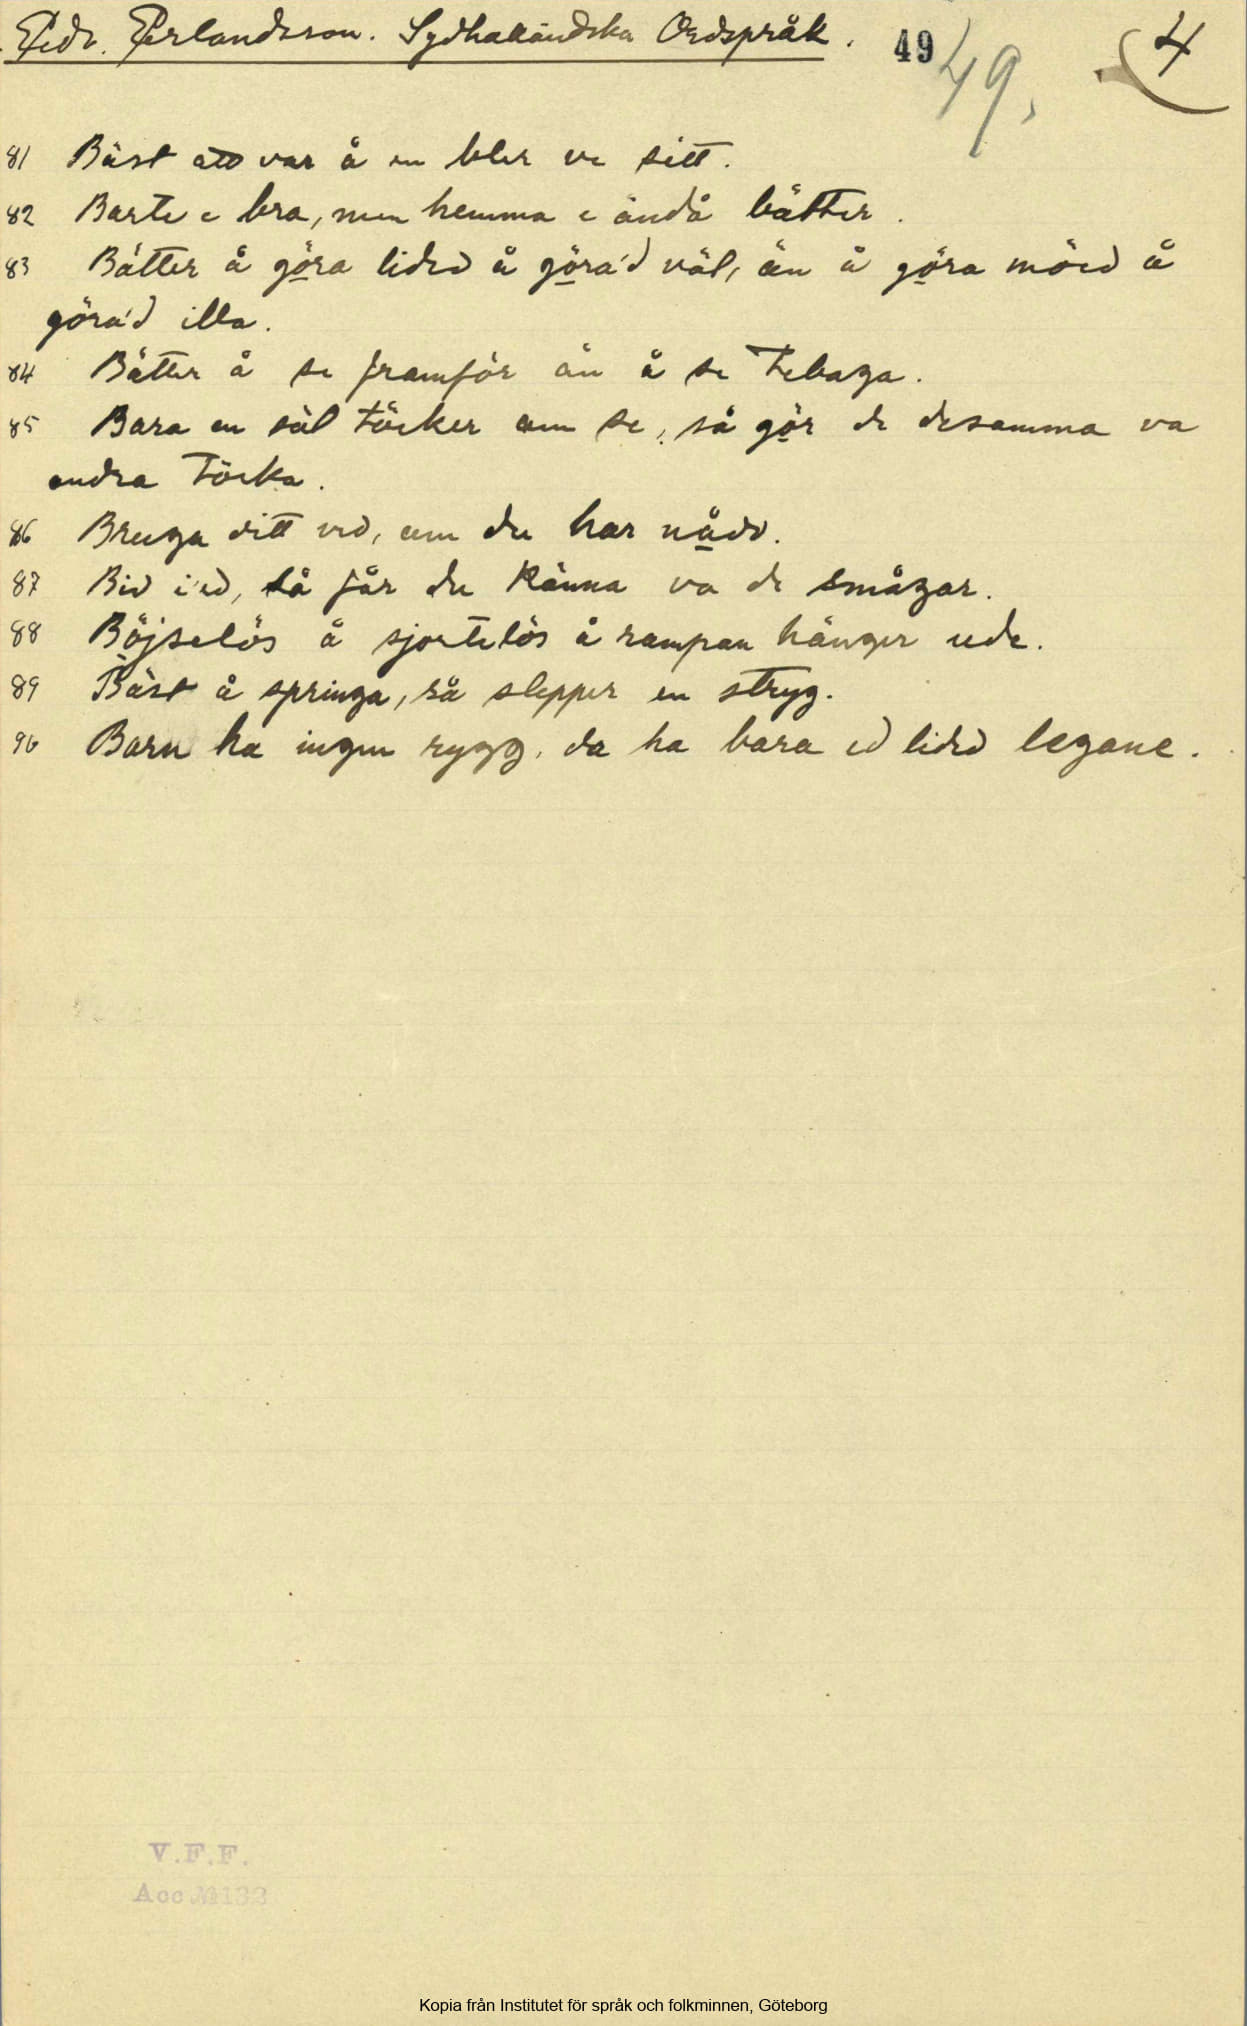 Pedr. Perlandsson. Sydhalländska Ordspråk. 49 49. 4
81 Bäst att var å en bler ve sitt.
82 Borte e bra, men hemma e ändå bätter.
83 Bätter å göra lided å göra'd väl, än å göra möed å
göra'd illa.
84 Bätter å se framför än å se tebaga.
85 Bara en säl töcker om se, så gör de desamma va
andra töcka.
86 Bruga ditt ved, om du har nåd.
87 Bid i'ed, så får du känna va de smågar.
88 Böjselös å sjortelös å rampan hänger ude.
89 Bäst å springa, så slepper en stryg.
90 Barn ha ingen rygg, da ha bara ed lided legane.
V.F.F.
Acc № 132
Kopia från Institutet för språk och folkminnen, Göteborg